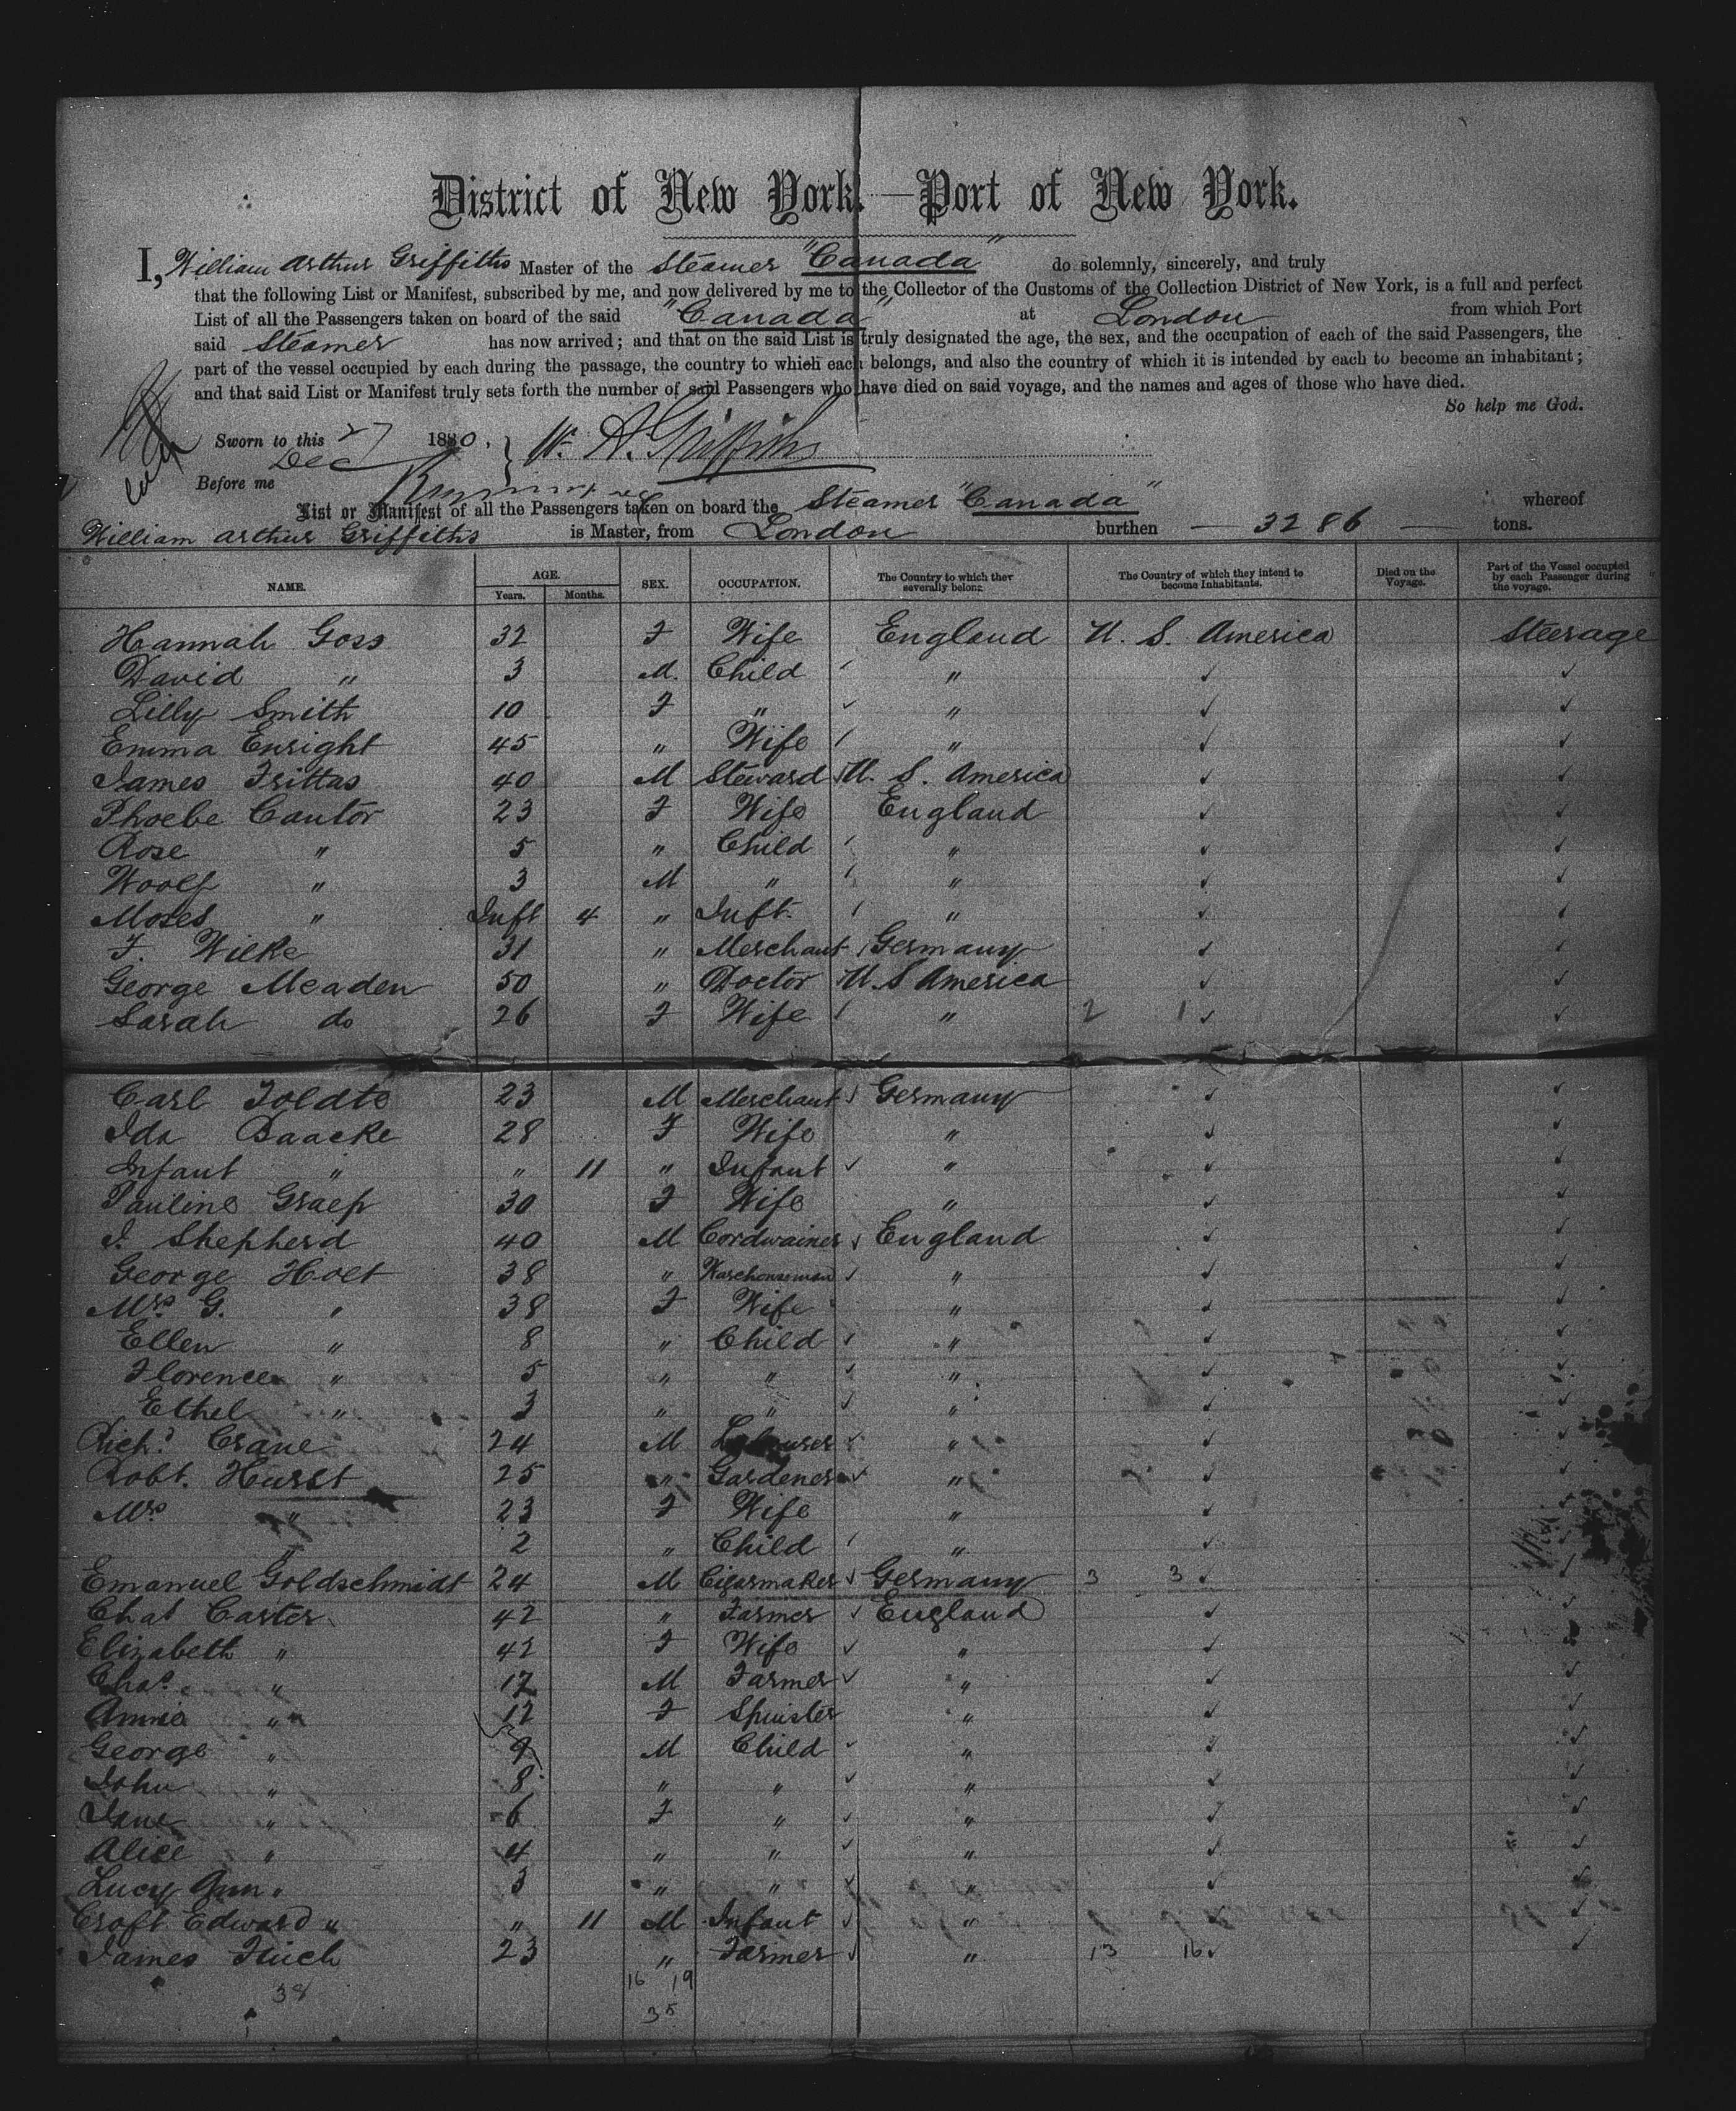 District of New York.—Port of New York.
I, William Arthur Griffiths Master of the Steamer "Canada" do solemnly, sincerely, and truly
that the following List or Manifest, subscribed by me, and now delivered by me to the Collector of the Customs of the Collection District of New York, is a full and perfect
List of all the Passengers taken on board of the said "Canada" at London from which Port
said Steamer has now arrived; and that on the said List is truly designated the age, the sex, and the occupation of each of the said Passengers, the
part of the vessel occupied by each during the passage, the country to which each belongs, and also the country of which it is intended by each to become an inhabitant;
and that said List or Manifest truly sets forth the number of said Passengers who have died on said voyage, and the names and ages of those who have died.
So help me God.
Sworn to this 27 1880. } W. A. Griffiths
Dec
Before me
List or Manifest of all the Passengers taken on board the Steamer "Canada" whereof
William Arthur Griffiths is Master, from London burthen — 3286 — tons.
NAME. AGE. Years. Months. SEX. OCCUPATION. The Country to which they severally belong. The Country of which they intend to become Inhabitants. Died on the Voyage. Part of the Vessel occupied by each Passenger during the voyage.
Hannah Goss 32 F Wife England U. S. America Steerage
David " 3 M. Child " ✓ ✓
Lilly Smith 10 F " ✓ " ✓ ✓
Emma Enright 45 " Wife " ✓ ✓
James Frittas 40 M Steward U. S. America ✓ ✓
Phoebe Cantor 23 F Wife England ✓ ✓
Rose " 5 " Child " ✓ ✓
Woolf " 3 M " " ✓ ✓
Moses " Inft 4 " Inft. " ✓ ✓
F. Wilke 31 " Merchant Germany ✓ ✓
George Meaden 50 " Doctor U. S America ✓ ✓
Sarah do 26 F Wife " 2 1 ✓ ✓
Carl Toldte 23 M Merchant ✓ Germany ✓ ✓
Ida Baacke 28 F Wife " ✓ ✓
Infant " " 11 " Infant ✓ " ✓ ✓
Pauline Graef 30 F Wife " ✓ ✓
J. Shepherd 40 M Cordwainer ✓ England ✓ ✓
George Holt 38 " Warehouseman ✓ " ✓ ✓
Mrs G. " 38 F Wife " ✓ ✓
Ellen " 8 " Child ✓ " ✓ ✓
Florence " 5 " " ✓ " ✓ ✓
Ethel " 3 " " ✓ " ✓ ✓
Richd. Crane 24 M Labourer ✓ " ✓ ✓
Robt. Hurst 25 " Gardener ✓ " ✓ ✓
Mrs " 23 F Wife " ✓
" 2 " Child " ✓
Emanuel Goldschmidt 24 M Cigarmaker ✓ Germany 3 3 ✓ ✓
Chas Carter 42 " Farmer ✓ England ✓ ✓
Elizabeth " 42 F Wife ✓ " ✓ ✓
Chas. " 17 M Farmer ✓ " ✓ ✓
Annie " 12 F Spinster " ✓ ✓
George " 9 M Child ✓ " ✓ ✓
John " 8 " " ✓ " ✓ ✓
Jane " 6 F " ✓ " ✓ ✓
Alice " 4 " " ✓ " ✓ ✓
Lucy Ann " 3 " " ✓ " ✓ ✓
Croft Edward " " 11 M Infant ✓ " ✓ ✓
James Finch 23 " Farmer ✓ " 13 16 ✓ ✓
16 19
38
35